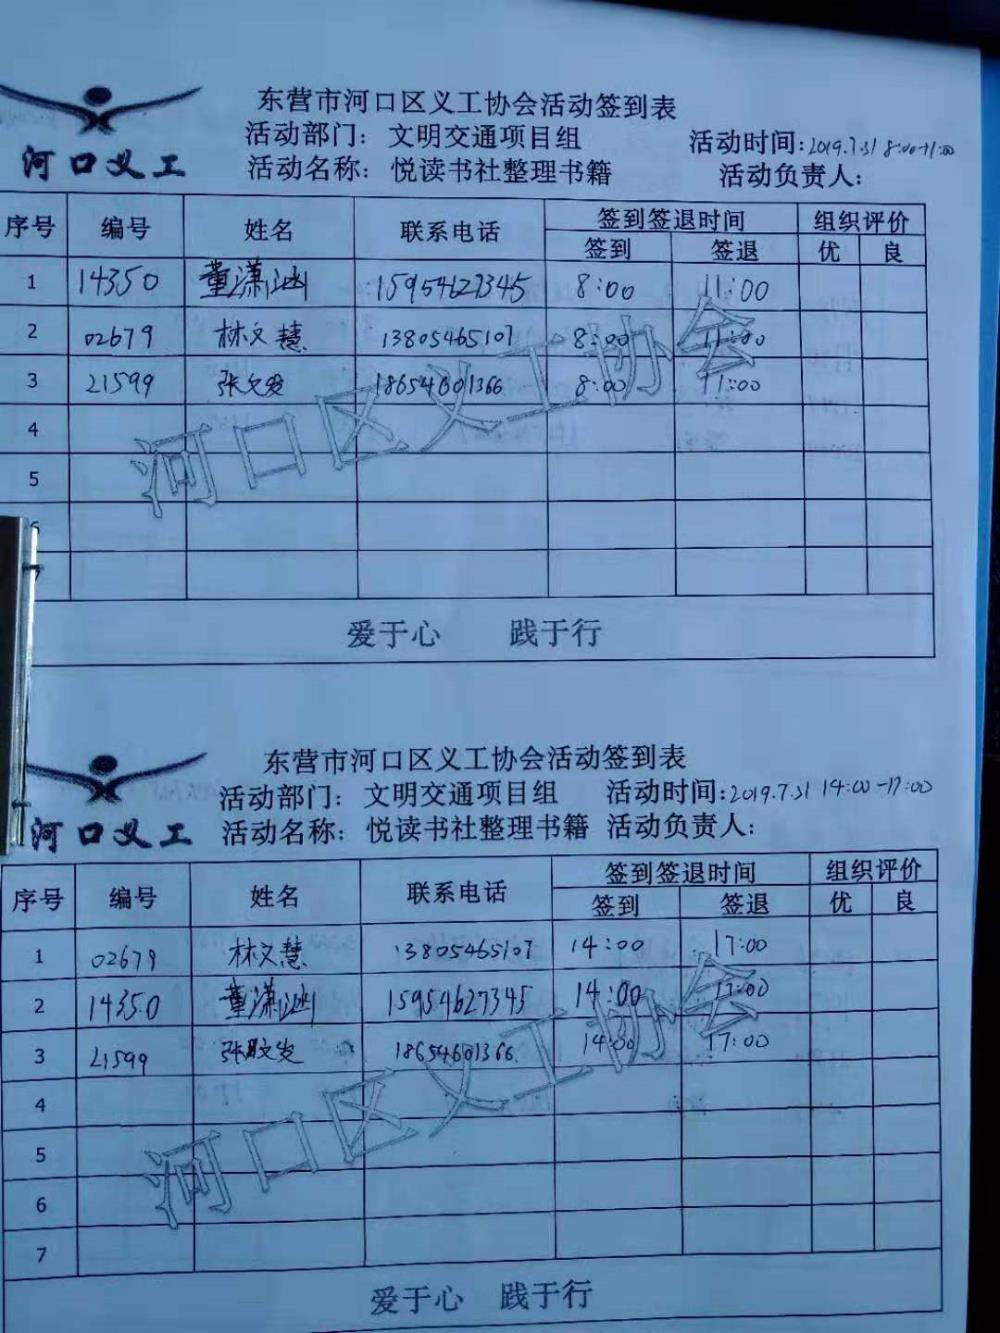 东营市河口区义工协会活动签到表
河口义工
活动部门：文明交通项目组 活动时间:2019.7.31 8:00-11:00
活动名称：悦读书社整理书籍 活动负责人:
序号 编号 姓名 联系电话 签到签退时间 组织评价
签到 签退 优 良
1 14350 董潇涵 15954627345 8:00 11:00
2 02679 林文慧 13805465107 8:00 11:00
3 21599 18654601366 8:00 11:00
4
5
河口区义工协会
爱于心 践于行
东营市河口区义工协会活动签到表
河口义工
活动部门：文明交通项目组 活动时间:2019.7.31 14:00-17:00
活动名称：悦读书社整理书籍 活动负责人:
序号 编号 姓名 联系电话 签到签退时间 组织评价
签到 签退 优 良
1 02679 林文慧 13805465107 14:00 17:00
2 14350 董潇涵 15954627345 14:00 17:00
3 21599 18654601366 14:00 17:00
4
5
6
7
河口区义工协会
爱于心 践于行